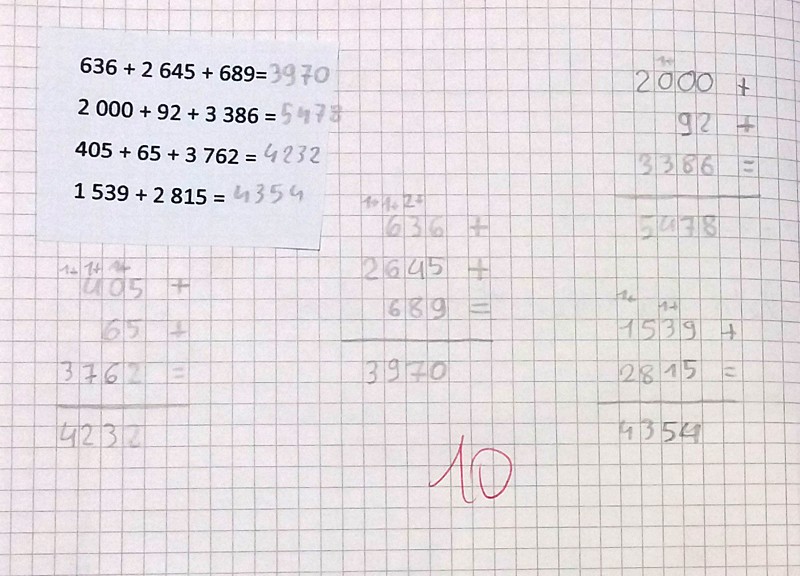 636 + 2 645 + 689= 3970
2 000 + 92 + 3 386 = 5478
405 + 65 + 3 762 = 4232
1 539 + 2 815 = 4354
1+
2000 +
92 +
3386 =
5478
1+ 1+ 2+
636 +
2645 +
689 =
3970
1+ 1+ 1+
405 +
65 +
3762 =
4232
1+ 1+
1539 +
2815 =
4354
10